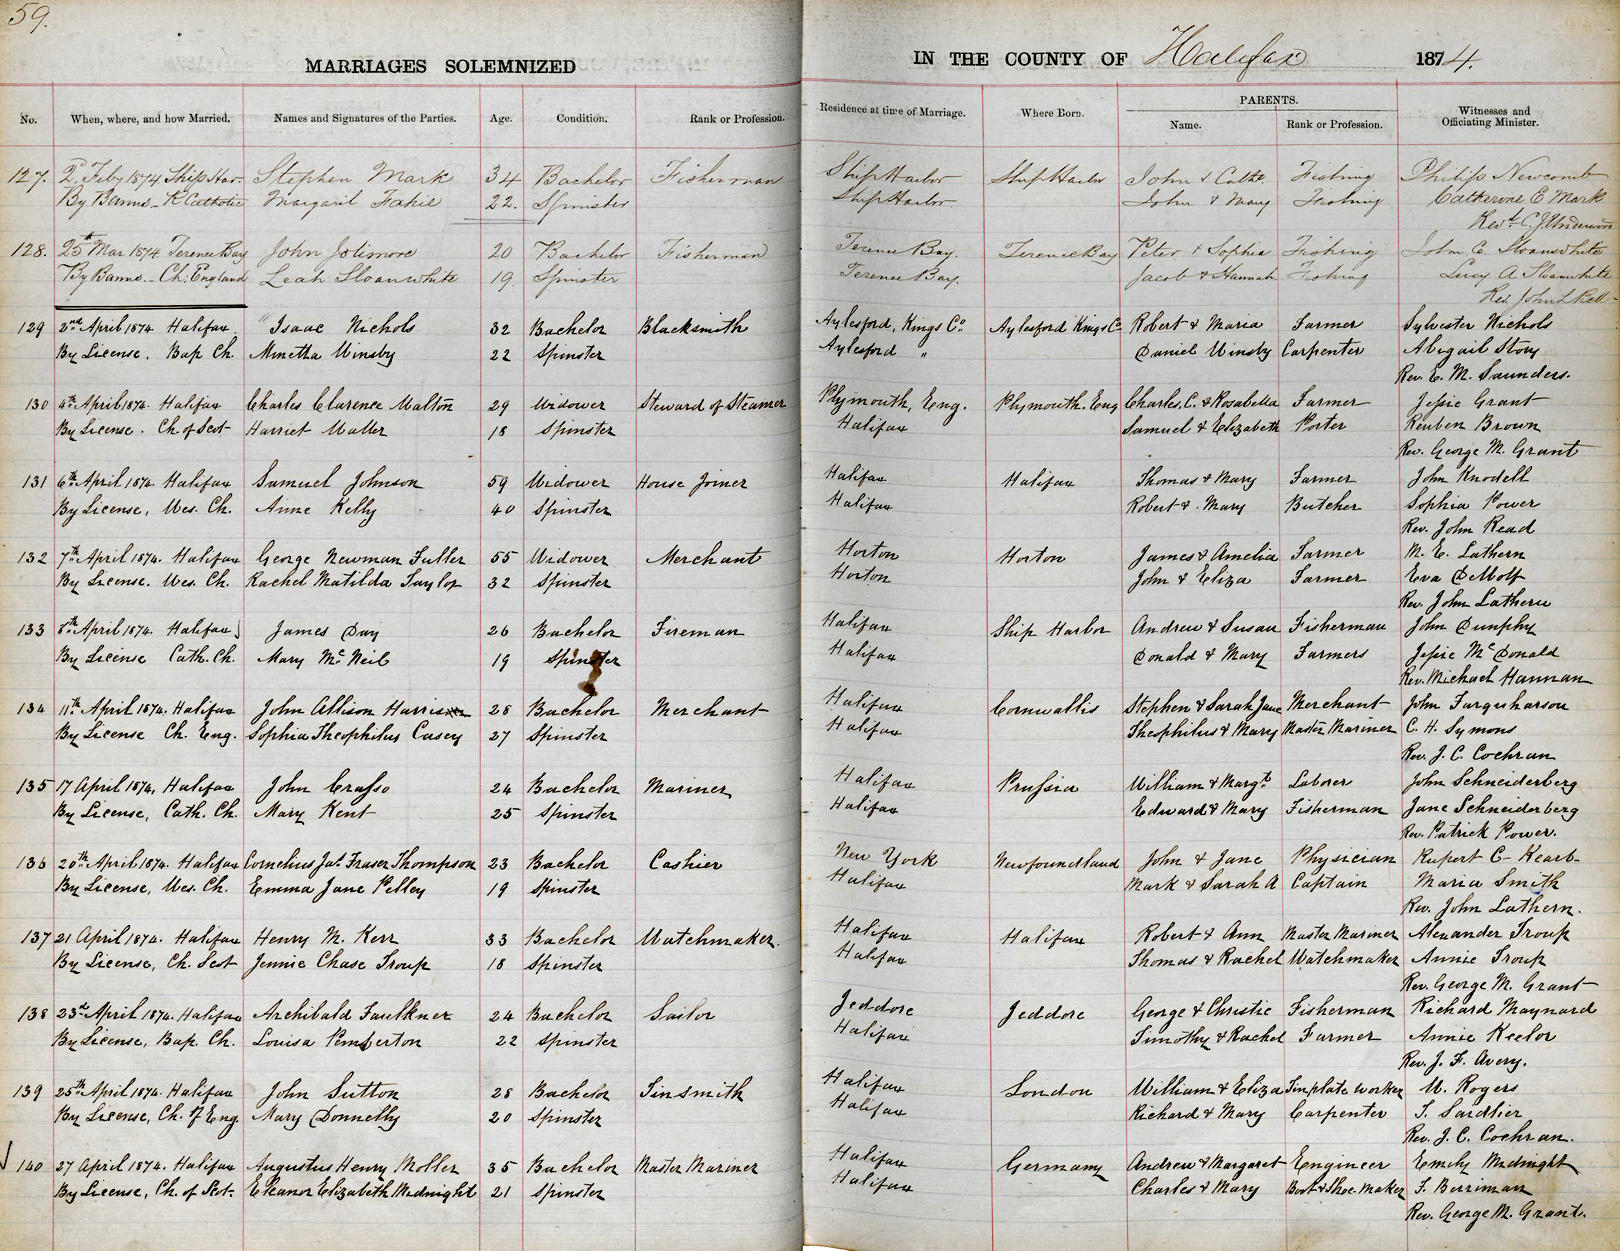 59.
MARRIAGES SOLEMNIZED IN THE COUNTY OF Halifax 1874.
No. When, where, and how Married. Names and Signatures of the Parties. Age. Condition. Rank or Profession. Residence at time of Marriage. Where Born. PARENTS. Name. Rank or Profession. Witnesses and Officiating Minister.
127. 2 Feby 1874 Ship Har. Stephen Mark 34 Bachelor Fisherman Ship Harbor Ship Harbor John & Cathe. Fishing Philip Newcomb
By Banns - R Catholic Margaret Fahie 22. Spinster Ship Harbor John & Mary Fishing Catherine E Mark
Revd. C. J. Underwood
128. 25th Mar 1874 Terence Bay John Jolimore 20 Bachelor Fisherman Terence Bay. Terence Bay Peter & Sophia Fishing John C. Slaunwhite
By Banns - Ch. England Leah Slaunwhite 19. Spinster Terence Bay. Jacob & Hannah Fishing Lucy A Slaunwhite
Rev John L Bell
129 2nd April 1874 Halifax. Isaac Nichols 32 Bachelor Blacksmith Aylesford, Kings Co. Aylesford Kings Co Robert & Maria Farmer Sylvester Nichols
By License. Bap Ch. Minetha Winsby 22 Spinster Aylesford " Daniel Winsby Carpenter Abigail Story
Rev. E. M. Saunders.
130 4th April 1874. Halifax Charles Clarence Walton 29 Widower Steward of Steamer Plymouth, Eng. Plymouth. Eng Charles, C. & Rosabella Farmer Jessie Grant
By License. Ch. of Scot Harriet Waller 18 Spinster Halifax Samuel & Elizabeth Porter Reuben Brown
Rev. George M. Grant
131 6th April 1874. Halifax Samuel Johnson 59 Widower House Joiner Halifax Halifax Thomas & Mary Farmer John Knodell
By License, Wes. Ch. Anne Kelly 40 Spinster Halifax Robert & Mary Butcher Sophia Power
Rev. John Read
132 7th April 1874. Halifax George Newman Fuller 55 Widower Merchant Horton Horton James & Amelia Farmer M. E. Lathern
By License. Wes. Ch. Rachel Matilda Taylor 32 Spinster Horton John & Eliza Farmer Eva DeWolf
Rev. John Lathern
133 8th April 1874. Halifax James Day 26 Bachelor Fireman Halifax Ship Harbor Andrew & Susan Fisherman John Dunphy
By License Cath. Ch. Mary McNeil 19 Spinster Halifax Donald & Mary Farmers Jessie McDonald
Rev. Michael Hannan
134 11th April 1874. Halifax John Allison Harris 28 Bachelor Merchant Halifax Cornwallis Stephen & Sarah Jane Merchant John Farquharson
By License Ch. Eng. Sophia Theophilus Casey 27 Spinster Halifax Theophilus & Mary Master Mariner C. H. Symons
Rev. J. C. Cochran
135 17 April 1874, Halifax John Crasso 24 Bachelor Mariner Halifax Prussia William & Margt. Laborer John Schneiderberg
By License, Cath. Ch. Mary Kent 25 Spinster Halifax Edward & Mary Fisherman Jane Schneiderberg
Rev. Patrick Power.
136 20th April 1874. Halifax Cornelius Jas. Fraser Thompson 23 Bachelor Cashier New York Newfoundland John & Jane Physician Rupert C
By License, Wes. Ch. Emma Jane Pelley 19 Spinster Halifax Mark & Sarah A Captain Maria Smith
Rev. John Lathern.
137 21 April 1874. Halifax Henry M. Kerr 33 Bachelor Watchmaker. Halifax Halifax Robert & Ann Master Mariner Alexander Troup
By License, Ch. Scot Jennie Chase Troup 18 Spinster Halifax Thomas & Rachel Watchmaker Annie Troup
Rev. George M. Grant
138 23rd April 1874. Halifax Archibald Faulkner 24 Bachelor Sailor Jeddore Jeddore George & Christie Fisherman Richard Maynard
By License, Bap. Ch. Louisa Pemberton 22 Spinster Halifax Timothy & Rachel Farmer Annie Keelor
Rev. J. F. Avery.
139 25th April 1874. Halifax John Sutton 28 Bachelor Tinsmith Halifax London William & Eliza Tinplate worker W. Rogers
By License, Ch. of Eng. Mary Donnelly 20 Spinster Halifax Richard & Mary Carpenter T. Sardtier
Rev. J. C. Cochran.
140 27 April 1874. Halifax Augustus Henry Moller 35 Bachelor Master Mariner Halifax Germany Andrew & Margaret Engineer Emily Midnight
By License, Ch. of Scot. Eleanor Elizabeth Midnight 21 Spinster Halifax Charles & Mary Boot & Shoe Maker F. Berriman
Rev. George M. Grant.